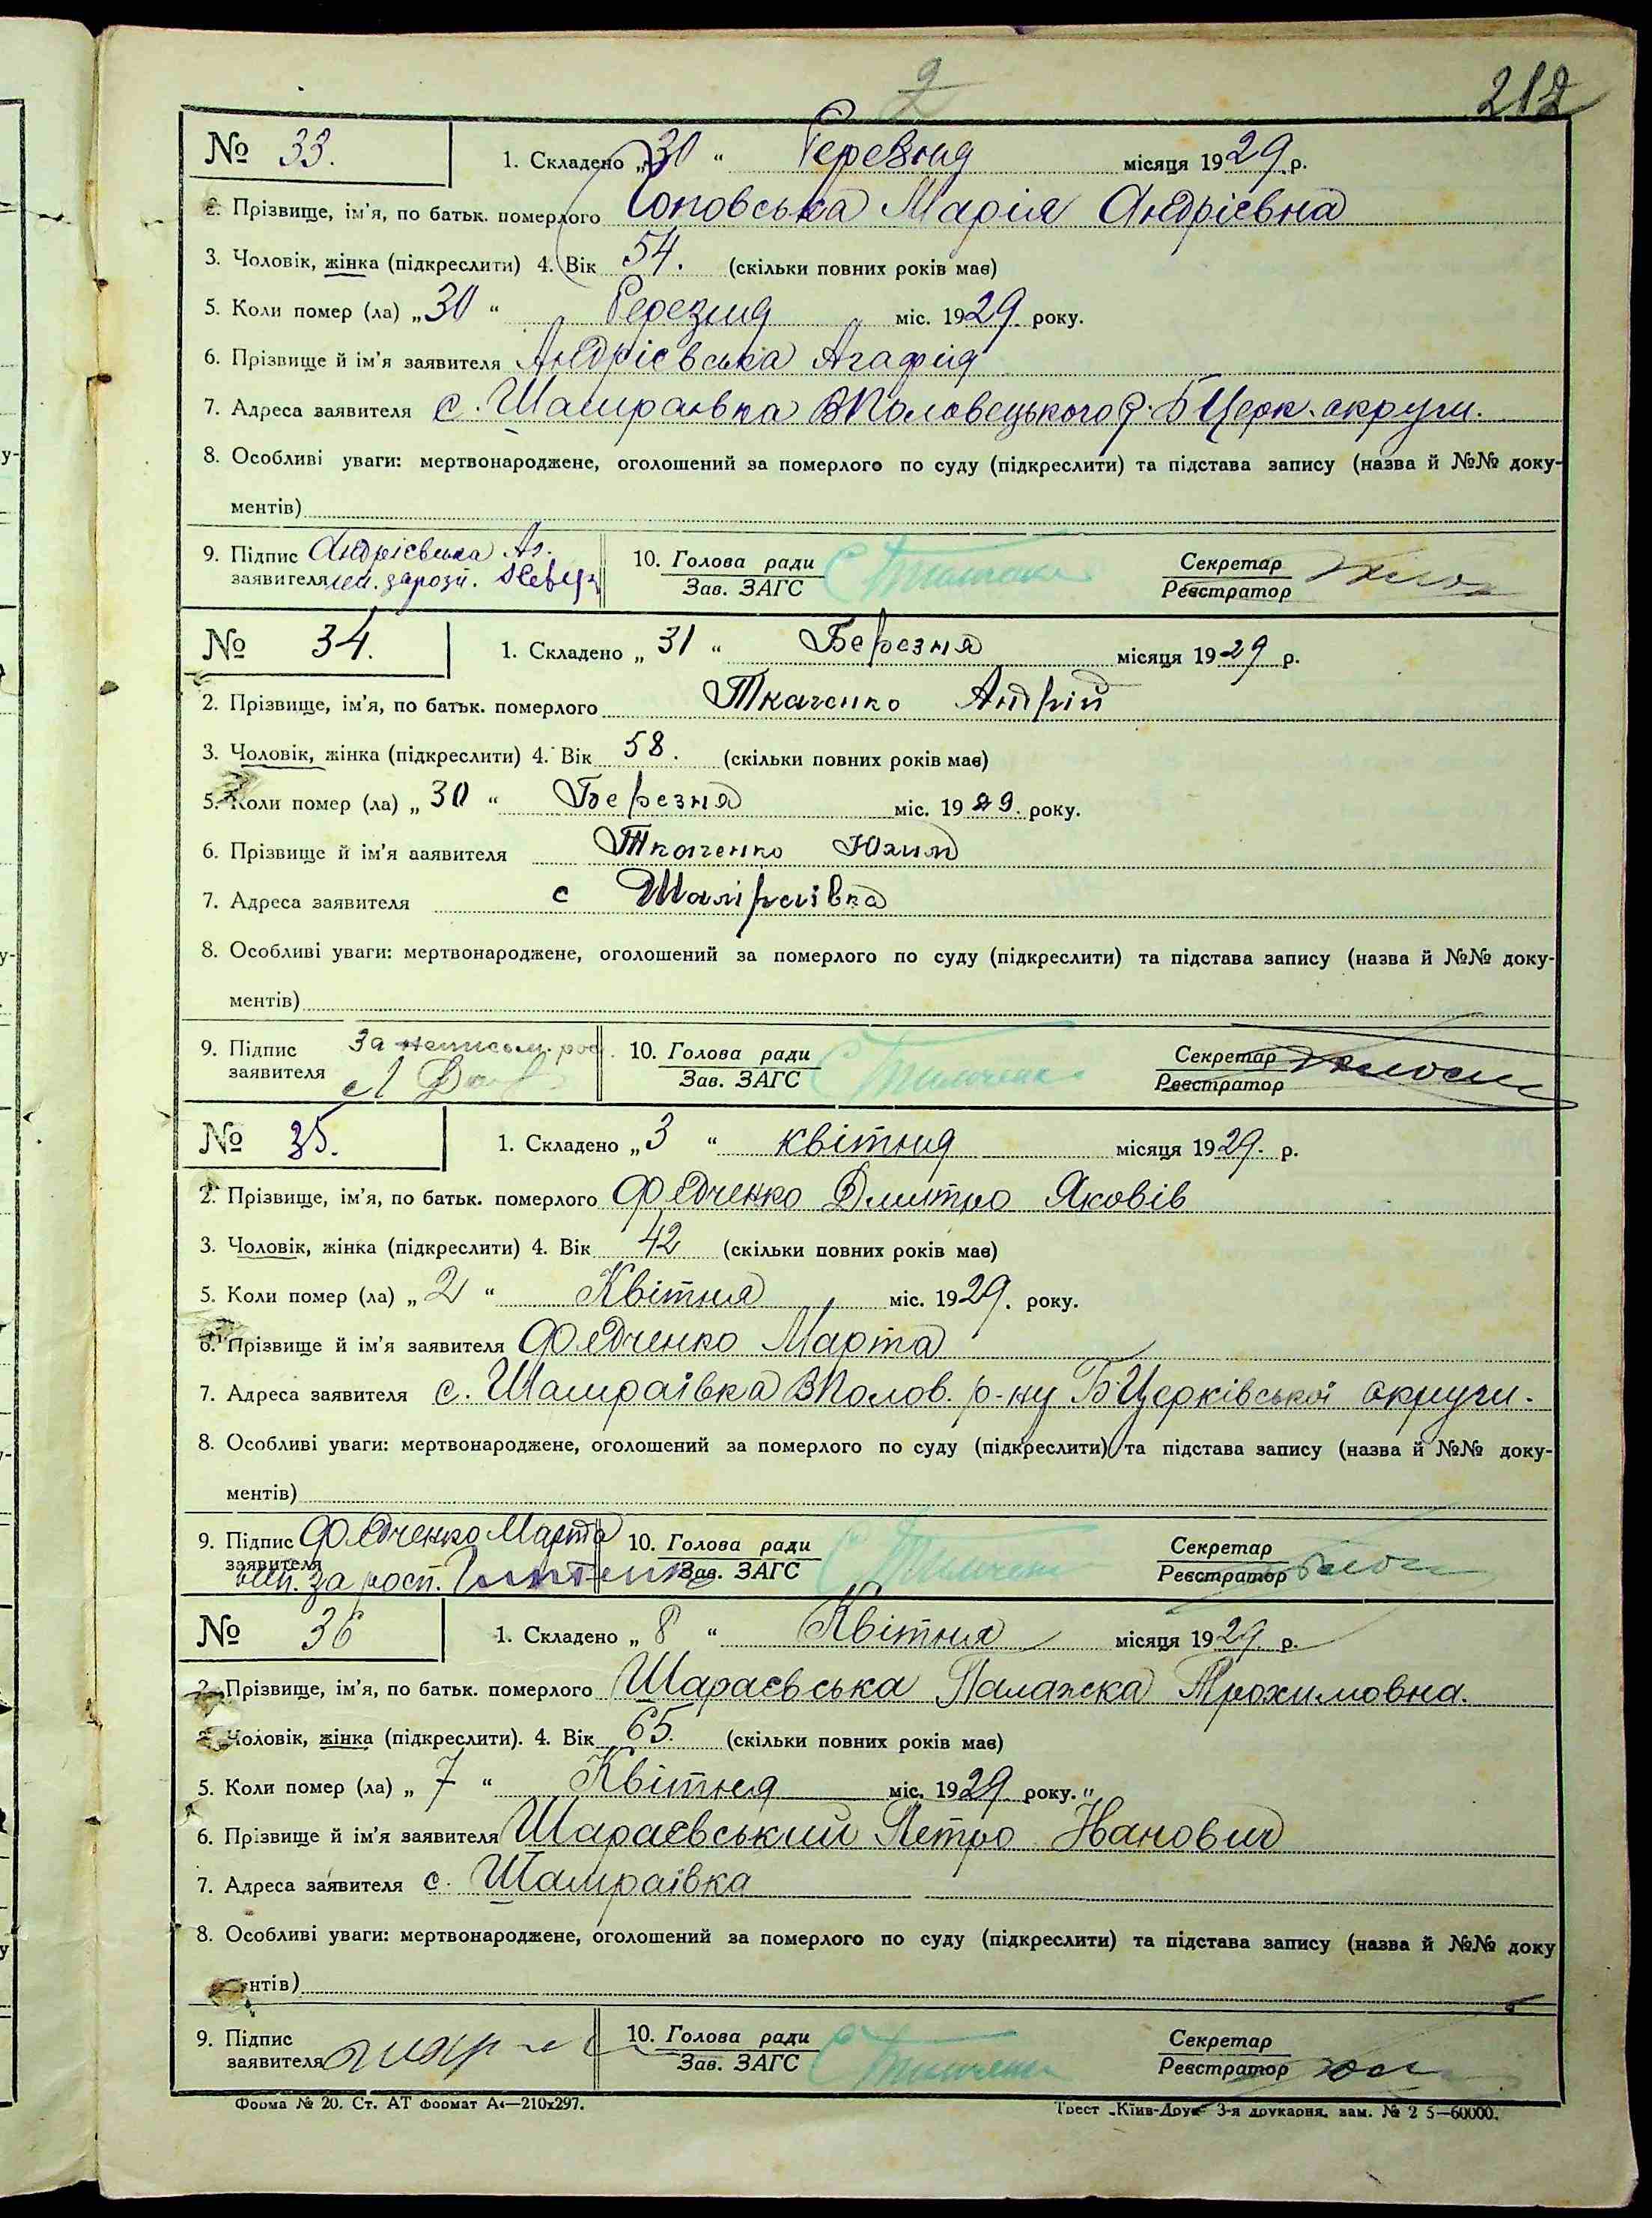 2
212
№ 33. 1. Складено „30“ Березня місяця 1929 р.
2. Прізвище, ім'я, по батьк. померлого Поповська Марія Андрієвна
3. Чоловік, жінка (підкреслити) 4. Вік 54. (скільки повних років має)
5. Коли помер (ла) „30“ Березня міс. 1929. року.
6. Прізвище й ім'я заявителя Андрієвська Агафія
7. Адреса заявителя с. Шамраївка ВПоловецького р. БЦерк. округи.
8. Особливі уваги: мертвонароджене, оголошений за померлого по суду (підкреслити) та підстава запису (назва й №№ доку-
ментів)
9. Підпис Андрієвська Аг. 10. Голова ради Секретар
заявителя Зав. ЗАГС Реєстратор
№ 34. 1. Складено „31“ Березня місяця 1929 р.
2. Прізвище, ім'я, по батьк. померлого Ткаченко Андрій
3. Чоловік, жінка (підкреслити) 4. Вік 58. (скільки повних років має)
5. Коли помер (ла) „30“ Березня міс. 1929. року.
6. Прізвище й ім'я заявителя Ткаченко Юхим
7. Адреса заявителя с Шамраївка
8. Особливі уваги: мертвонароджене, оголошений за померлого по суду (підкреслити) та підстава запису (назва й №№ доку-
ментів)
9. Підпис За 10. Голова ради Секретар
заявителя Зав. ЗАГС Реєстратор
№ 35. 1. Складено „3“ квітня місяця 1929. р.
2. Прізвище, ім'я, по батьк. померлого Федченко Дмитро Яковів
3. Чоловік, жінка (підкреслити) 4. Вік 42 (скільки повних років має)
5. Коли помер (ла) „2“ Квітня міс. 1929. року.
6. Прізвище й ім'я заявителя Федченко Марта
7. Адреса заявителя с. Шамраївка ВПолов. р-ну БЦерківської округи.
8. Особливі уваги: мертвонароджене, оголошений за померлого по суду (підкреслити) та підстава запису (назва й №№ доку-
ментів)
9. Підпис Федченко Марта 10. Голова ради Секретар
заявителя за росп. Зав. ЗАГС Реєстратор
№ 36 1. Складено „8“ Квітня місяця 1929 р.
2. Прізвище, ім'я, по батьк. померлого Шараєвська Палажка Трохимовна.
3. Чоловік, жінка (підкреслити). 4. Вік 65. (скільки повних років має)
5. Коли помер (ла) „7“ Квітня міс. 1929 року.
6. Прізвище й ім'я заявителя Шараєвський Петро Іванович
7. Адреса заявителя с. Шамраївка
8. Особливі уваги: мертвонароджене, оголошений за померлого по суду (підкреслити) та підстава запису (назва й №№ доку
ментів)
9. Підпис 10. Голова ради Секретар
заявителя Зав. ЗАГС Реєстратор
Форма № 20. Ст. АТ Формат А4—210х297. Трест „Київ-Друк“ 3-я друкарня. зам. № 2 5—60000.